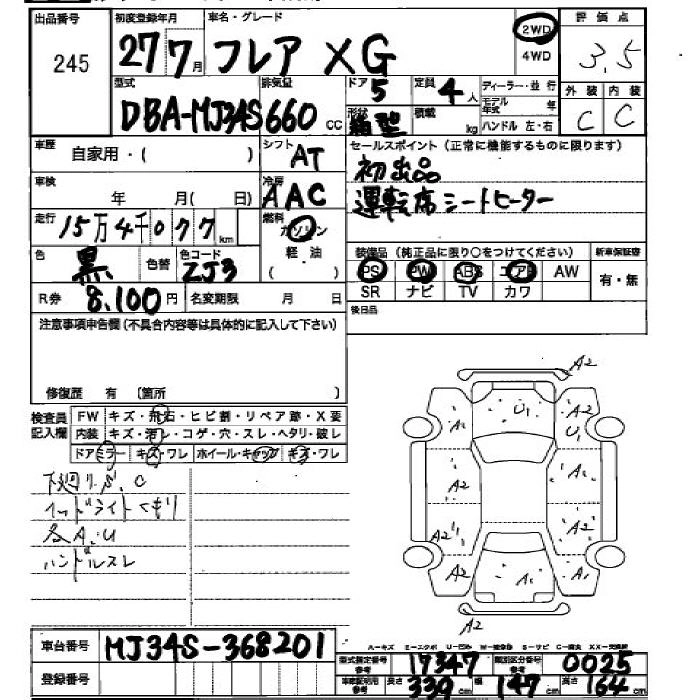 出品番号 初度登録年月 車名・グレード 2WD 4WD 評価点
245 27 7月 フレア XG 3.5
型式 排気量 ドア 5 定員 4人 ディーラー・並行 外装 内装
DBA-MJ34S 660cc 形状 箱型 積載 kg モデル年式 年 C C
ハンドル 左・右
車歴 自家用・( ) シフト AT セールスポイント(正常に機能するものに限ります)
初出品
車検 年 月( 日) 冷房 AAC 運転席シートヒーター
走行 15万4千077km 燃料 ガソリン
軽油
( )
色 黒 色替 色コード ZJ3 装備品(純正品に限り○をつけてください) 新車保証書
PS PW ABS エアB AW 有・無
R券 8,100円 名変期限 月 日 SR ナビ TV カワ
注意事項申告欄(不具合内容等は具体的に記入して下さい) 後日品
修復歴 有 〔箇所 〕
検査員記入欄 FW キズ・飛石・ヒビ割・リペア跡・X要
内装 キズ・汚レ・コゲ・穴・スレ・ヘタリ・破レ
ドアミラー キズ・ワレ ホイール・キャップ キズ・ワレ
下廻りS、C
ヘッドライトくもり
各A、U
ハンドルスレ
A2
U1 A2
U1
A2 A1
A2 A2
A2 A1 A2
A2
車台番号 MJ34S-368201
A-キズ E-エクボ U-凹み W-補修跡 S-サビ C-腐食 XX-交換済
型式指定番号 参考 17347 類別区分番号 参考 0025
登録番号 車庫証明用 参考 長さ 339cm 幅 147cm 高さ 164cm